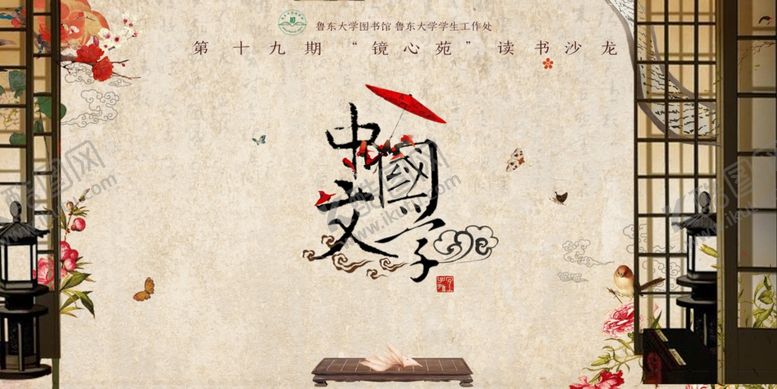 鲁东大学图书馆 鲁东大学学生工作处
第十九期“镜心苑”读书沙龙
中國
文学